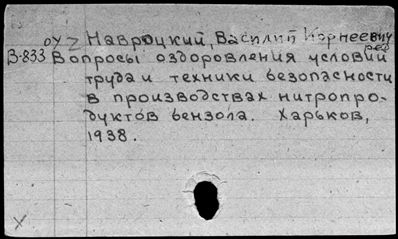 оч z Навроцкий, Василий Корнеевич
ред.
В-833 Вопросы оздоровления условий
труда и техники безопасности
в производствах нитропро-
дуктов бензола. Харьков,
1938.